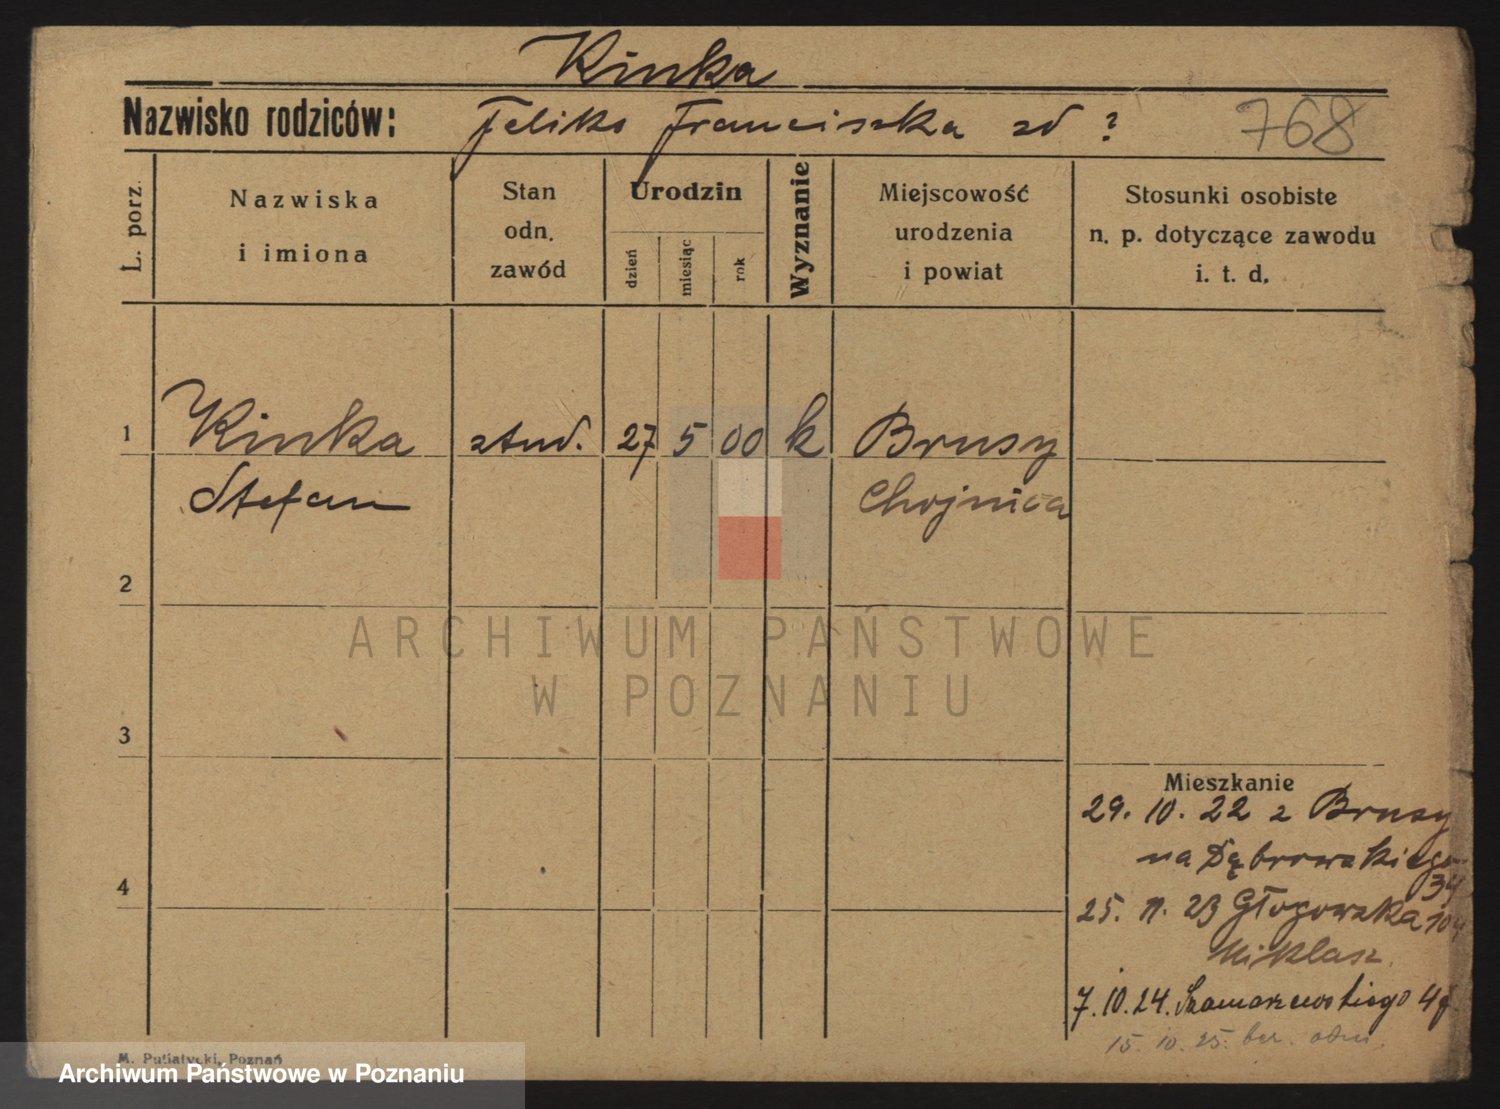 Kinka
Nazwisko rodziców: Feliks Franciszka zd ? 768
L. porz.
Nazwiska
i imiona
Stan
odn.
zawód
Urodzin
dzień
miesiąc
rok
Wyznanie
Miejscowość
urodzenia
i powiat
Stosunki osobiste
n. p. dotyczące zawodu
i. t. d.
1 Kinka stud. 27 5 00 k Brusy
Stefan Chojnica
2
ARCHIWUM PAŃSTWOWE
W POZNANIU
3
Mieszkanie
29. 10. 22 z Brusy
na Dąbrowskiego
34
25. 11. 23 Głogowska
Miklasz
7. 10. 24. Szamarzewskiego
15. 10. 25.
4
M. Putiatycki, Poznań
Archiwum Państwowe w Poznaniu